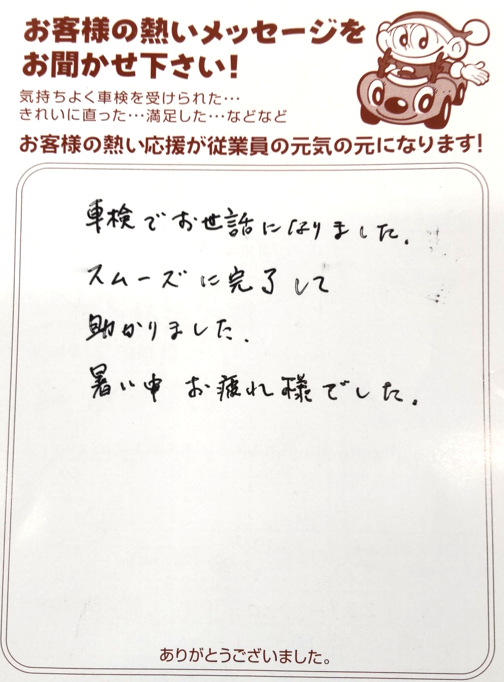 お客様の熱いメッセージを
お聞かせ下さい!
気持ちよく車検を受けられた…
きれいに直った…満足した…などなど
お客様の熱い応援が従業員の元気の元になります!
車検でお世話になりました.
スムーズに完了して
助かりました.
暑い中 お疲れ様でした.
ありがとうございました。